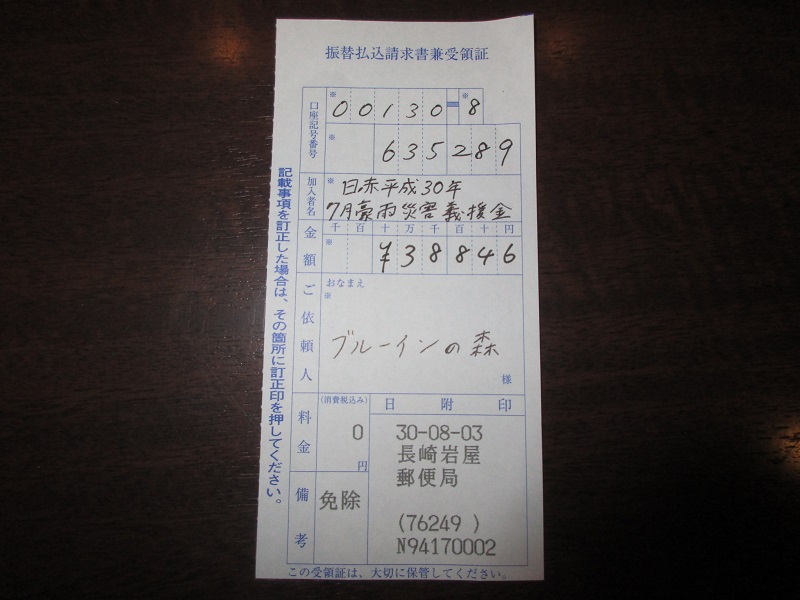 振替払込請求書兼受領証
口座記号番号
※ 00130-8
※ 635289
加入者名
※ 日赤平成30年
7月豪雨災害義援金
金額
千百十万千百十円
※ ¥38846
ご依頼人
おなまえ
※
ブルーインの森
様
料金
(消費税込み)
0
円
日附印
30-08-03
長崎岩屋
郵便局
(76249 )
N94170002
備考
免除
記載事項を訂正した場合は、その箇所に訂正印を押してください。
この受領証は、大切に保管してください。